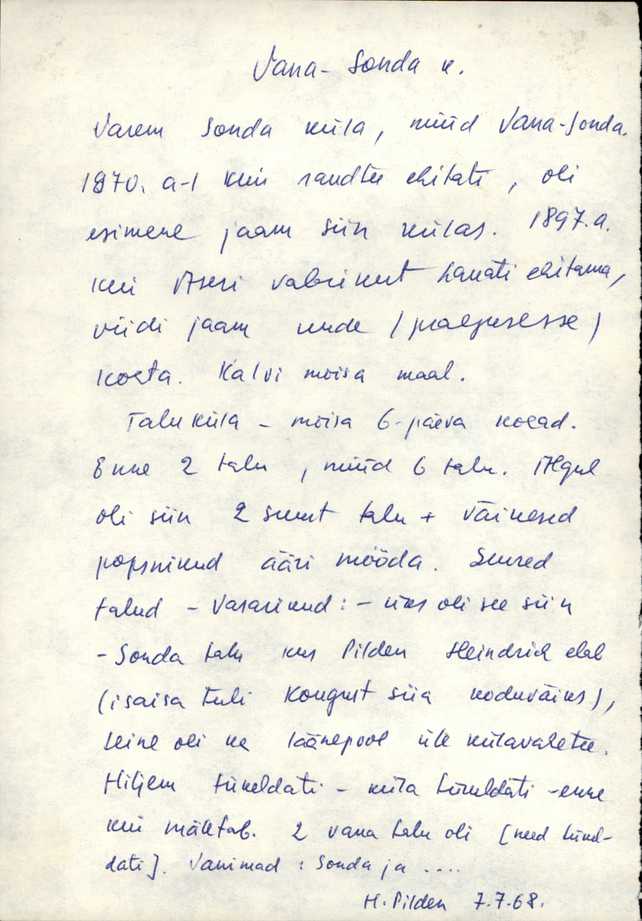 Vana-Sonda k.
Varem Sonda küla, nüüd Vana-Sonda.
1870. a-l kui raudtee ehitati, oli
esimene jaam siin külas. 1897.a.
kui Aseri vabrikut hakati ehitama,
viidi jaam uude (praegusesse)
kohta. Kalvi mõisa maal.
Taluküla - mõisa 6-päeva kohad.
Enne 2 talu, nüüd 6 talu. Algul
oli siin 2 suurt talu + väikesed
popsnikud ääri mööda. Suured
talud - Vasarikud: - üks oli see siin
- Sonda talu kus Pilden Heindrich elab
(isaisa tuli Kongust siia koduväiks),
teine oli ka läänepool üle külavahetee.
Hiljem tükeldati - küla tükeldati - enne
kui mäletab. 2 vana talu oli [need tükel-
dati]. Vanimad: Sonda ja ....
H. Pilden 7.7.68.